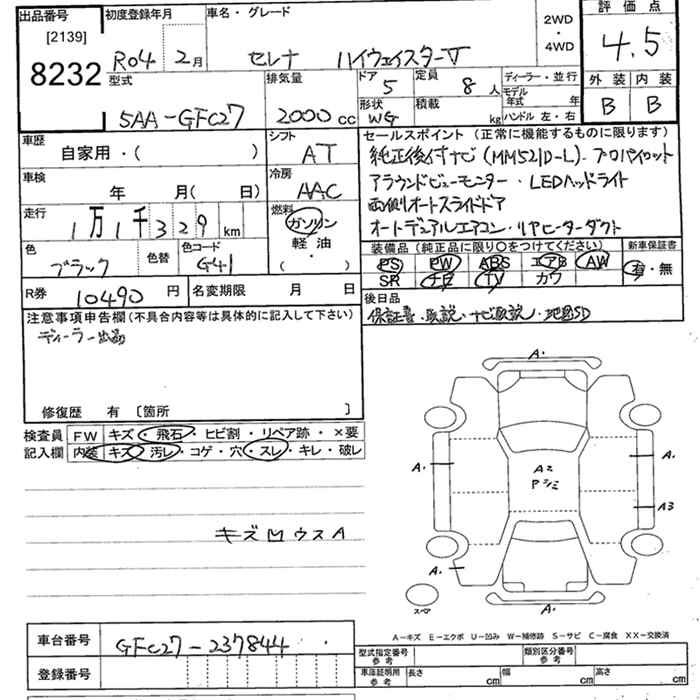 出品番号 初度登録年月 車名・グレード 2WD・4WD 評価点
[2139]
8232 R04 2月 セレナ ハイウェイスターV 4.5
型式 排気量 ドア 5 定員 8人 ディーラー・並行 外装 内装
5AA-GFC27 2000cc 形状 WG 積載 kg モデル年式 年 B B
ハンドル 左・右
車歴 シフト セールスポイント (正常に機能するものに限ります)
自家用・( ) AT 純正後付ナビ(MM521D-L)・プロパイロット
車検 冷房 アラウンドビューモニター・LEDヘッドライト
年 月( 日) AAC 両側オートスライドドア
走行 燃料 オートデュアルエアコン・リヤヒーターダクト
1万1千329km ガソリン
軽油
・
( )
装備品 (純正品に限り○をつけてください) 新車保証書
色 色替 色コード PS PW ABS エアB AW 有・無
ブラック G41 SR ナビ TV カワ
R券 10490円 名変期限 月 日 後日品
保証書・取説・ナビ取説・地図SD
注意事項申告欄(不具合内容等は具体的に記入して下さい)
ディーラー出品
修復歴 有 〔箇所 〕
検査員 FW キズ・飛石・ヒビ割・リペア跡・×要
記入欄 内装 キズ・汚レ・コゲ・穴・スレ・キレ・破レ
A・
A・ A2 A・
Pシミ
A3
A・
スペア A・
キズ凹ウスA
A-キズ E-エクボ U-凹み W-補修跡 S-サビ C-腐食 XX-交換済
車台番号 GFC27-237844
型式指定番号 参考 類別区分番号 参考
登録番号 車庫証明用 参考 長さ cm 幅 cm 高さ cm